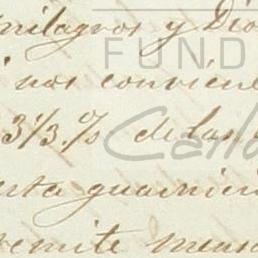 milagros y Dio
FUND
i nos convien
33 1/3 % de las
Carlo
sta guarnici
remite mens